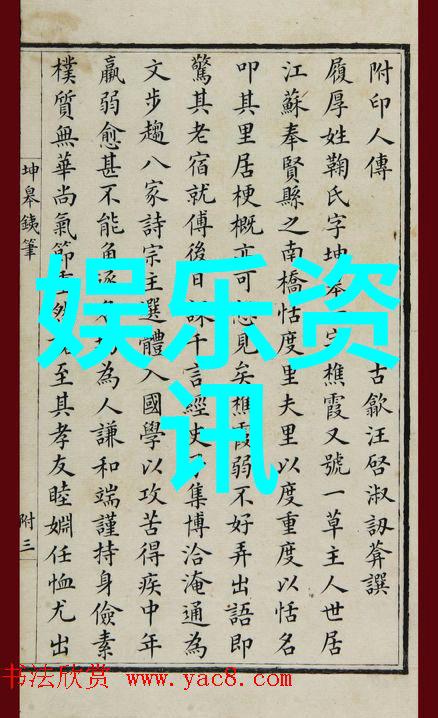 附印人傳 古歙汪啓淑訒葊撰
履厚姓鞠氏字坤字樵霞又號一草主人世居
江蘇奉賢縣之南橋恬度里夫里以度重度以恬名
叩其里居梗概亦可見矣樵霞弱不好弄出語即
驚其老宿就傅後日課千言經史集博洽淹通為
文步趨八家詩宗主選體入國學以攻苦得疾中年
羸弱愈甚不能角逐為人謙和端謹持身儉素
樸質無華尚氣節至其孝友睦婣任恤尤出
坤皋鐵筆
附三
娱乐资
讯
书法欣赏 www.yac8.com